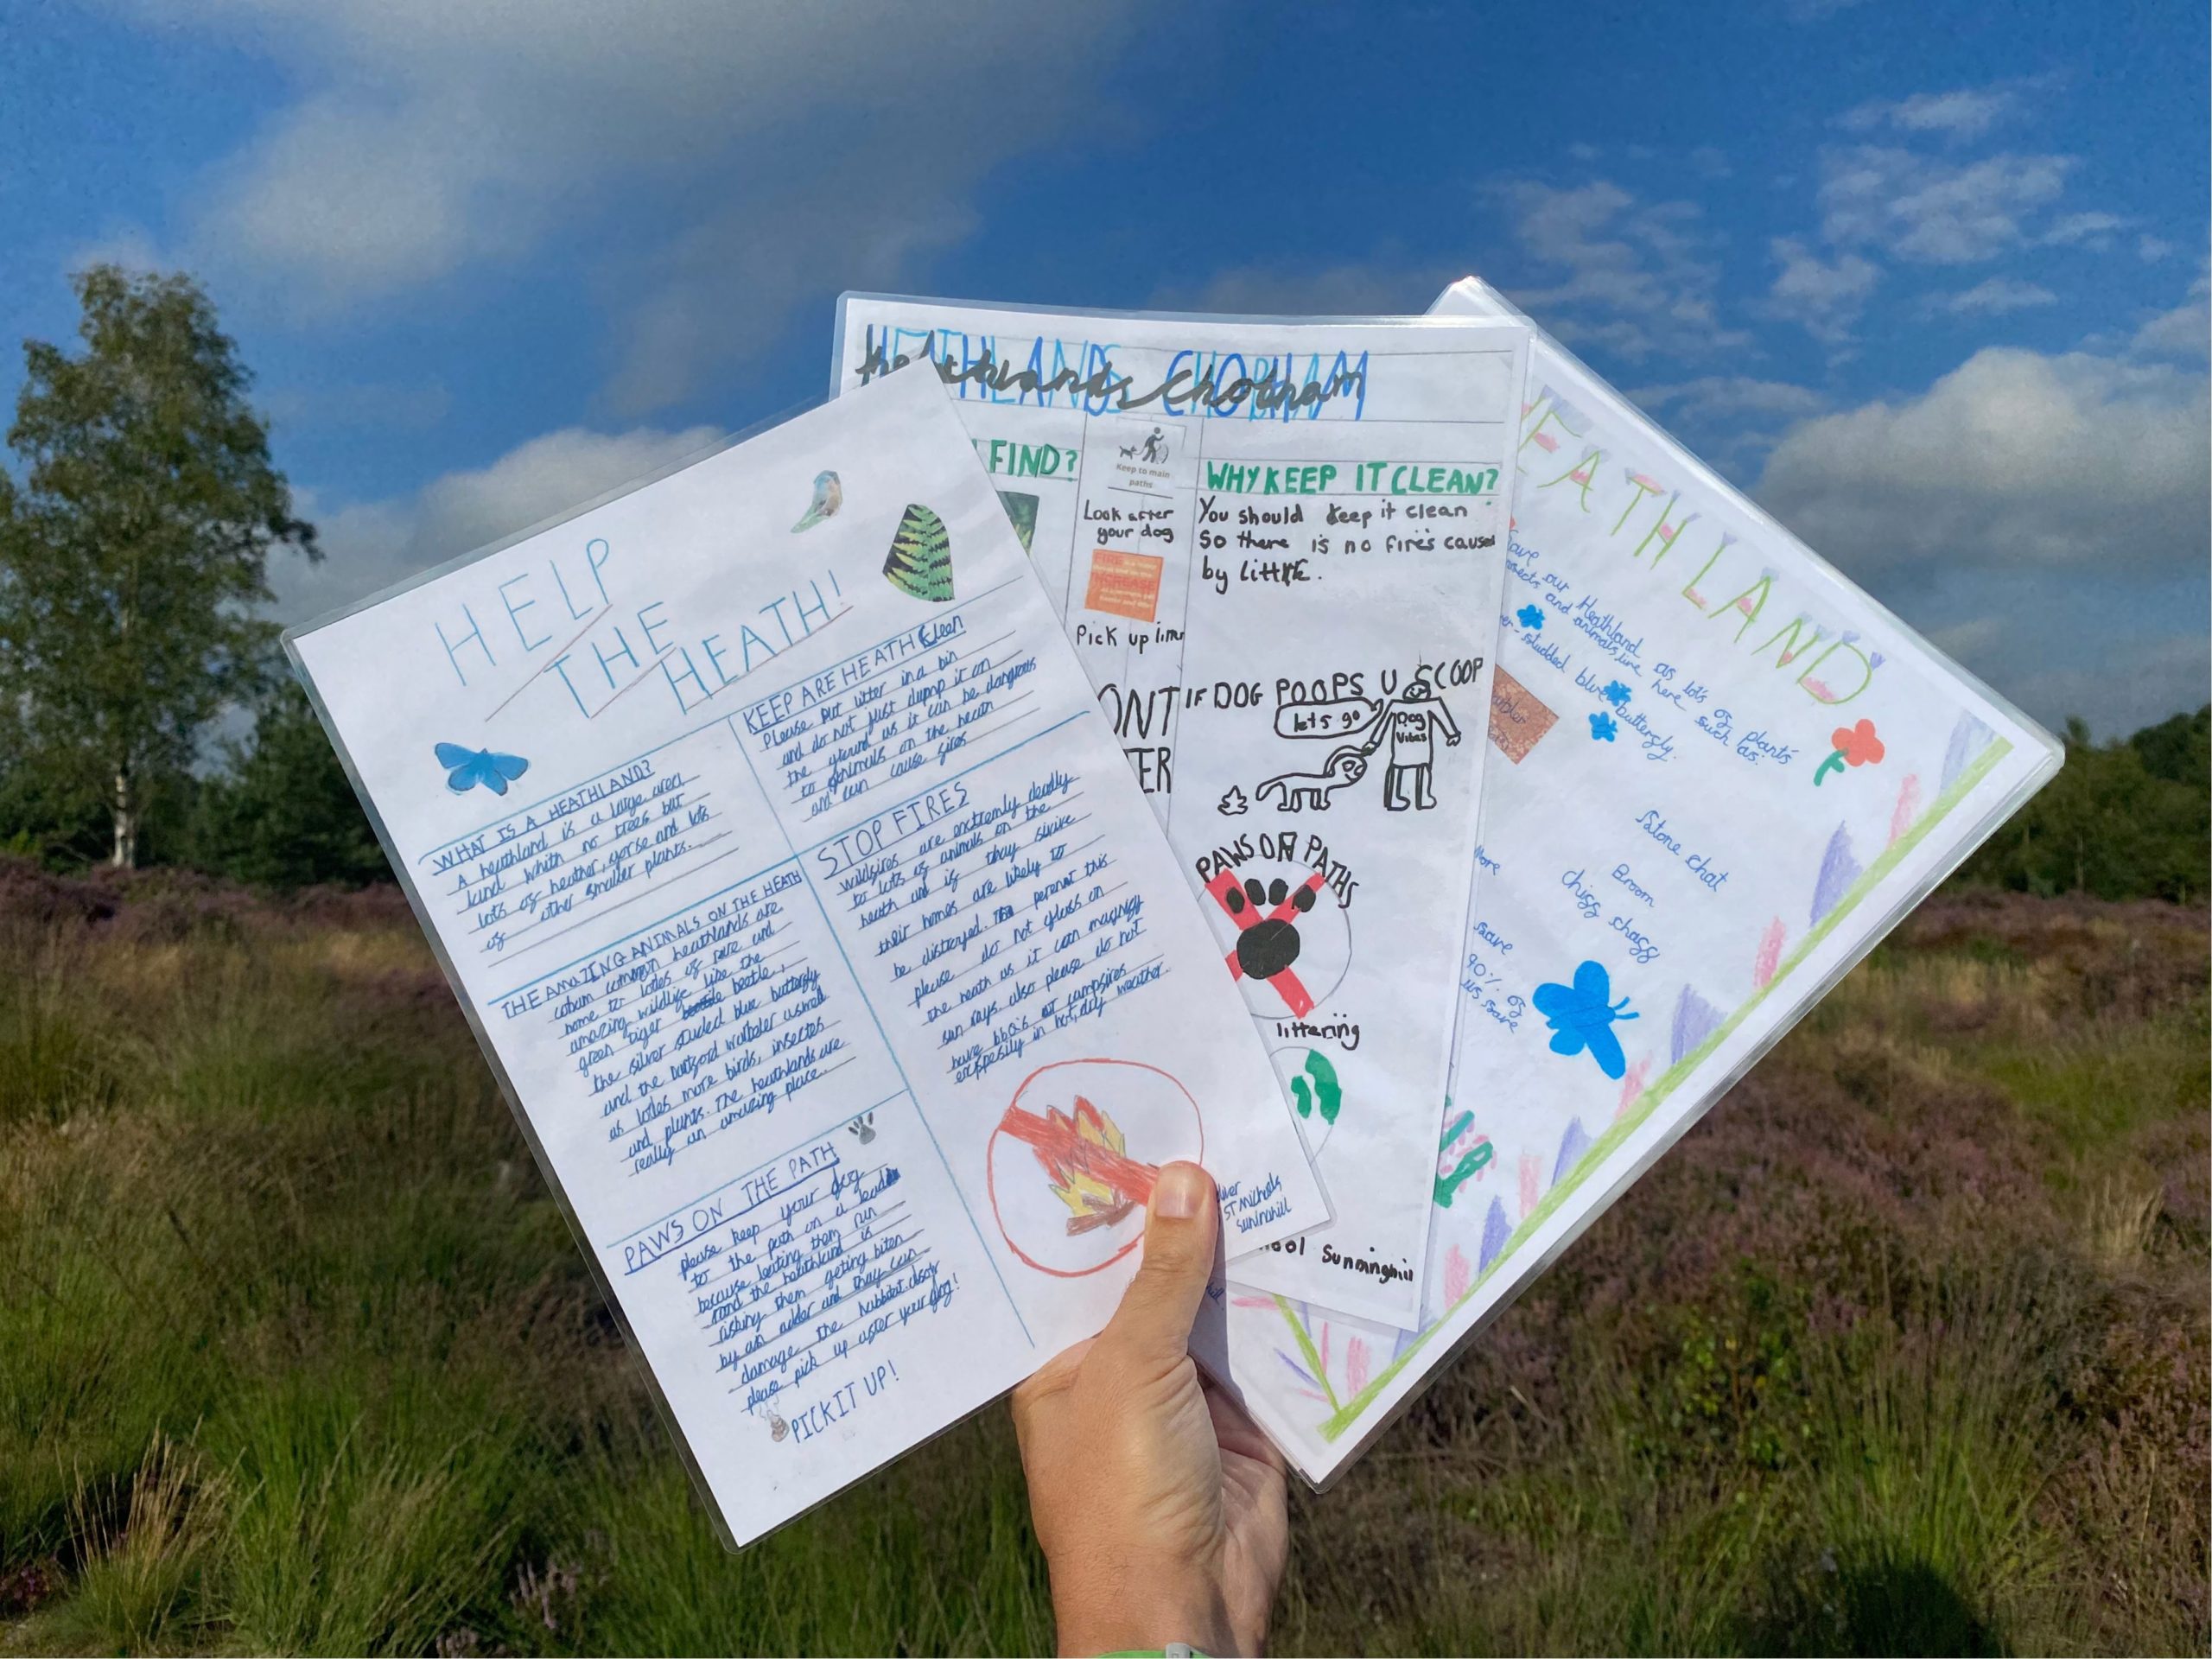 HELP
THE
HEATH!
WHAT IS A HEATHLAND?
A heathland is a large area
land whith no trees but
lots of heather, gorse and lots
of other smaller plants.
THE AMAZING ANIMALS ON THE HEATH
cobham common heathlands are
home to lodes of rare and
amazing wildlife like the
green tiger beetle,
the silver studed blue butterfly
and the dartford warbler
as lodes more birds, insectes
and plants. The heathlands are
really an amazing place.
PAWS ON THE PATH
please keep your dog
to the path on a lead
because leting them run
rond the heathland is
risking them geting biten
by an adder and thay can
damage the habbitat. also
please pick up after your dog!
PICK IT UP!
KEEP ARE HEATH Clean
Please put litter in a bin
and do not just dump it on
the ground as it can be dangerous
to animals on the heath
and can cause fires
STOP FIRES
wildfires are extremly deadly
to lots of animals on the
heath and if they
their homes are likely to
be distroyed. To this
please do not glass on
the heath as it can
sun rays. also please do not
have bbq's or campfires
in hot, dry weather.
ST Michaels
Sunninghill
HEATHLANDS CHOBHAM
Heathlands Chobham
FIND?
Keep to main
paths
Look after
your dog
FIRE
Pick up
WHY KEEP IT CLEAN?
You should keep it clean
so there is no fires caused
by
ONT
TER
IF DOG POOPS U SCOOP
lets go
Dog
Vibes
PAWS ON PATHS
littering
ool Sunninghill
EATHLAND
Save our Heathland as lots of plants
insects and animals live here such as:
er-studded blue butterfly.
Stone chat
Broom
Chiff chaff
more
save
90% of
us save